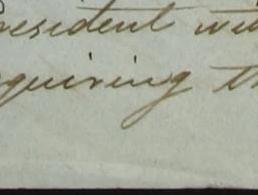 resident wi
quiring th